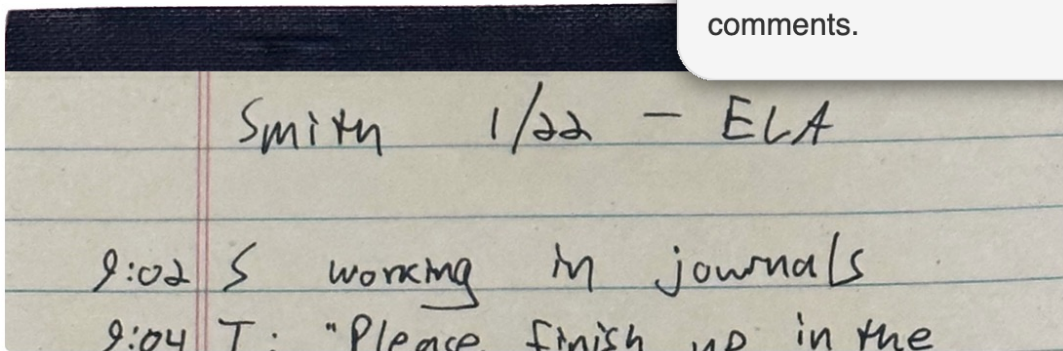 comments.
Smith 1/22 - ELA
9:02 S working in journals
9:04 T: "Please finish up in the